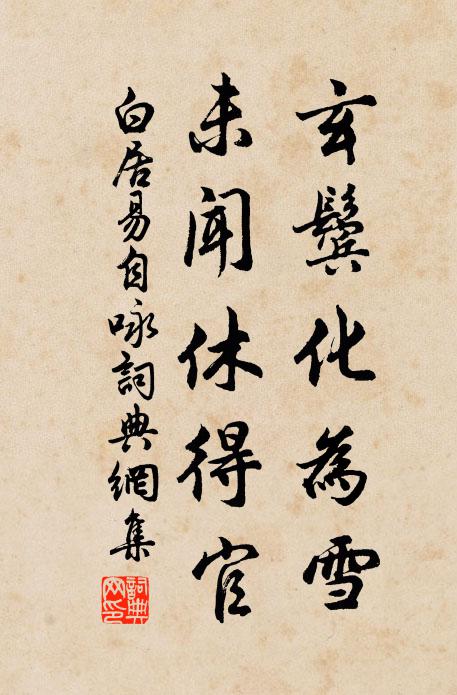 玄鬓化為雪
未聞休得官
白居易自咏詞典網集
詞典網印